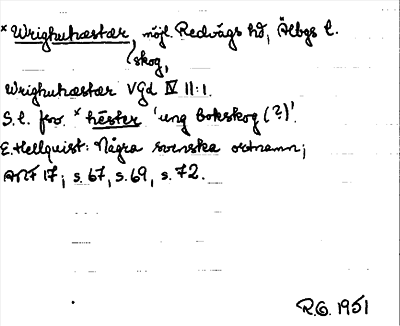 * Wrighuhæstær, möjl. Redvägs hd, Älbgs l.
(skog,
Wrighuhæstær VGd IV 11:1.
S.l. fsv. * hēster 'ung bokskog (?)'.
E. Hellquist: Några svenska ortnamn;
ANF 17; s. 67, s. 69, s. 72.
R.G. 1951